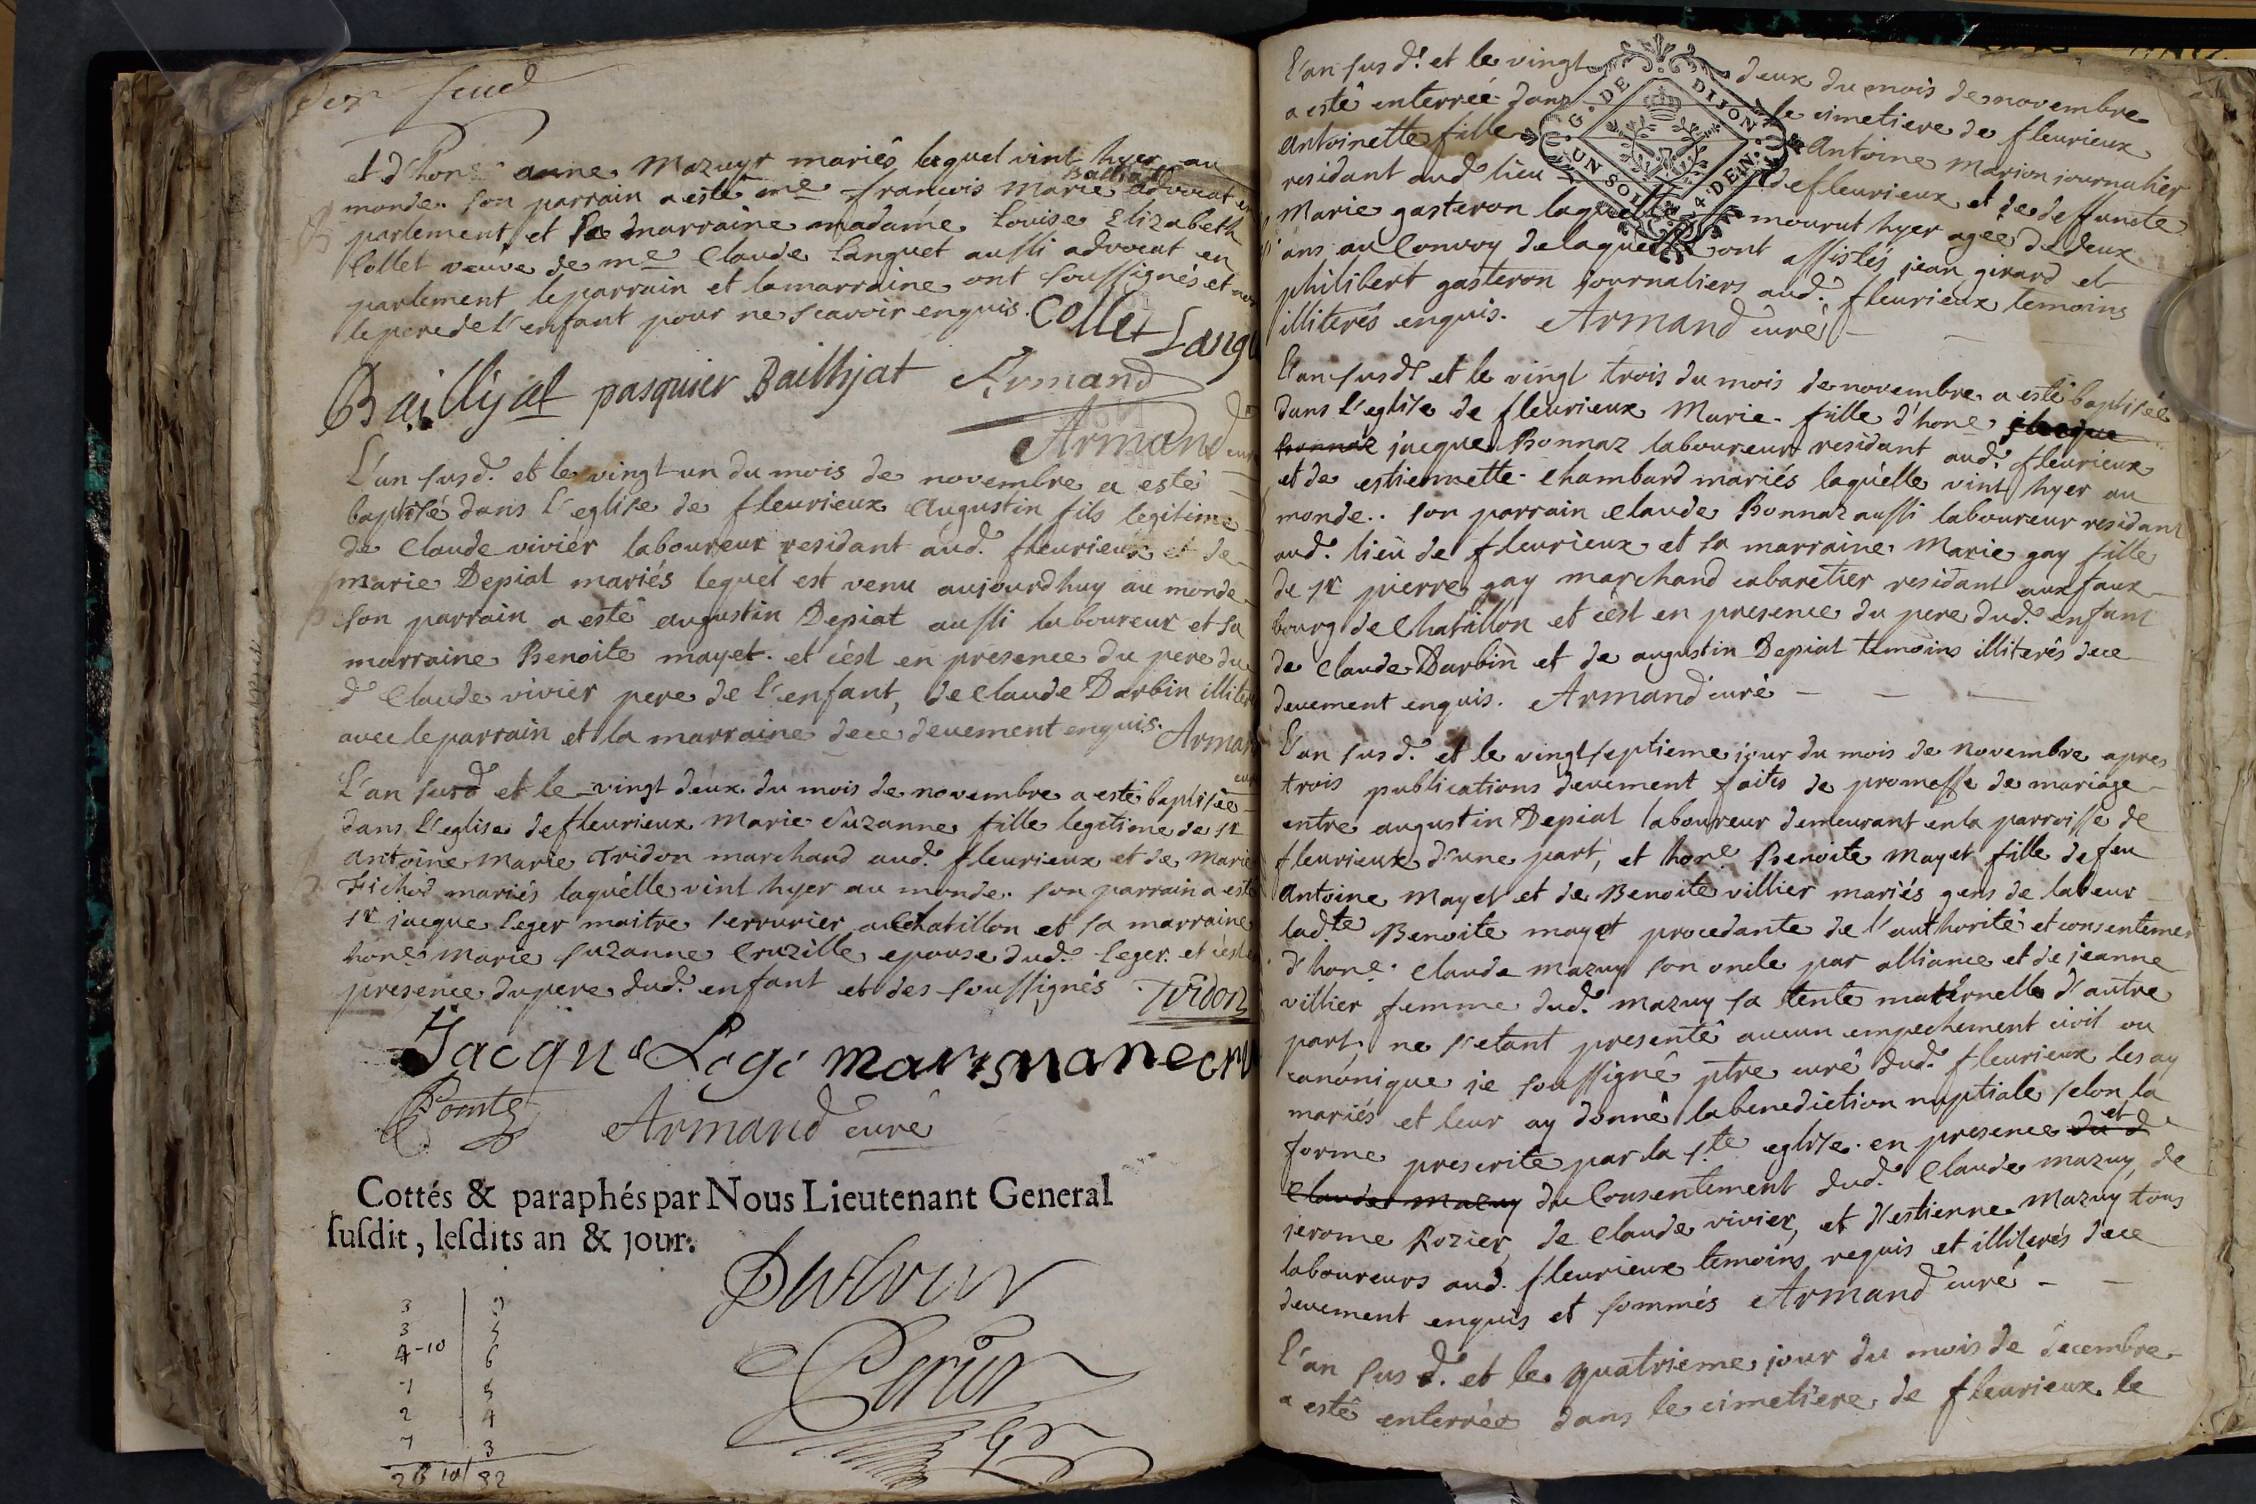 et d'hone anne Mazuyr mariés lequel vint hyer au
monde. son parrain a esté me francois Marie Bailliat advocat en
parlement et sa marraine madame Louise Elizabeth
Collet veuve de me Claude Languet aussi advocat en
parlement le parrain et la marraine ont soussignés et non
le pere de l'enfant pour ne scavoir enquis. Collet Langu
Baillyat pasquier Bailhjat Armand
Armand curé
L'an susd. et le vingt un du mois de novembre a esté
baptisé dans l'eglise de fleurieux Augustin fils legitime
de Claude vivier laboureur residant aud. fleurieux et de
marie Depiat mariés lequel est venu aujourdhuy au monde
son parrain a esté augustin Depiat aussi laboureur et sa
marraine Benoite mayet. et c'est en presence du pere du
d Claude vivier pere de l'enfant, de Claude Darbin illiter
avec le parrain et la marraine de ce deuement enquis. Arman
cur
L'an susd et le vingt deux du mois de novembre a esté baptisée
dans l'eglise de fleurieux Marie Suzanne fille legitime de sr
antoine marie Tridon marchand aud. fleurieux et de Marie
Fichod mariés laquelle vint hyer au monde. son parrain a esté
sr jacque Leger maitre serrurier a Chatillon et sa marraine
hone Marie Suzanne Cruzille epouse dud. Leger. et c'est
presence du pere dud. enfant et des soussignés Tridon
Jacque Lege marisusanecru
Armand curé
Cottés & paraphés par Nous Lieutenant General
susdit, lesdits an & jour.
3 | 9
3 | 5
4-10 | 6
7 | 5
2 | 4
7 | 3
26 10 | 32
L'an susd. et le vingt deux du mois de novembre
a esté enterrée dans le cimetiere de fleurieux
Antoinette fille Antoine Marion journalier
G. DE DIJON
UN SOL 4 DEN.
residant aud. lieu de fleurieux et de deffuncte
Marie gasteron laquelle mourut hyer agée de deux
ans au Convoy de laquelle ont assistés jean girard et
philibert gasteron journaliers aud. fleurieux temoins
illiterés enquis. Armand curé
L'an susd et le vingt trois du mois de novembre a esté baptisée
dans l'eglise de fleurieux Marie fille d'hone jacque
bonnaz jacque Bonnaz laboureur residant aud. fleurieux
et de estiennette Chambard mariés laquelle vint hyer au
monde. son parrain Claude Bonnaz aussi laboureur residant
aud. lieu de fleurieux et sa marraine Marie gay fille
de sr pierre gay marchand cabaretier residant aux faux
bourg de Chatillon et c'est en presence du pere dud. enfant
de Claude Darbin et de augustin Depiat temoins illiterés de ce
deuement enquis. Armand curé
L'an susd. et le vingt septieme jour du mois de novembre apres
trois publications deuement faites de promesse de mariage
entre augustin Depiat laboureur demeurant en la parroisse de
fleurieux d'une part, et hone Benoite Mayet fille de feu
antoine Mayet et de Benoite villier mariés gens de labeur
ladte Benoite mayet procedante de l'authorité et consentemen
d'hone Claude mazuy son oncle par alliance et de jeanne
villier femme dud. mazuy sa tente maternelle d'autre
part, ne s'etant presenté aucun empechement civil ou
canonique je soussigné ptre curé dud. fleurieux les ay
mariés et leur ay donné la benediction nuptiale selon la
forme prescrite par la ste eglise en presence du d et
Claude mazuy du Consentement dud. Claude mazuy, de
jerome Rozier, de Claude vivier, et d'estienne Mazuy tous
laboureurs aud. fleurieux temoins requis et illiterés de ce
deuement enquis et sommés Armand curé
L'an susd. et le quatrieme jour du mois de decembre
a esté enterrée dans le cimetiere de fleurieux le